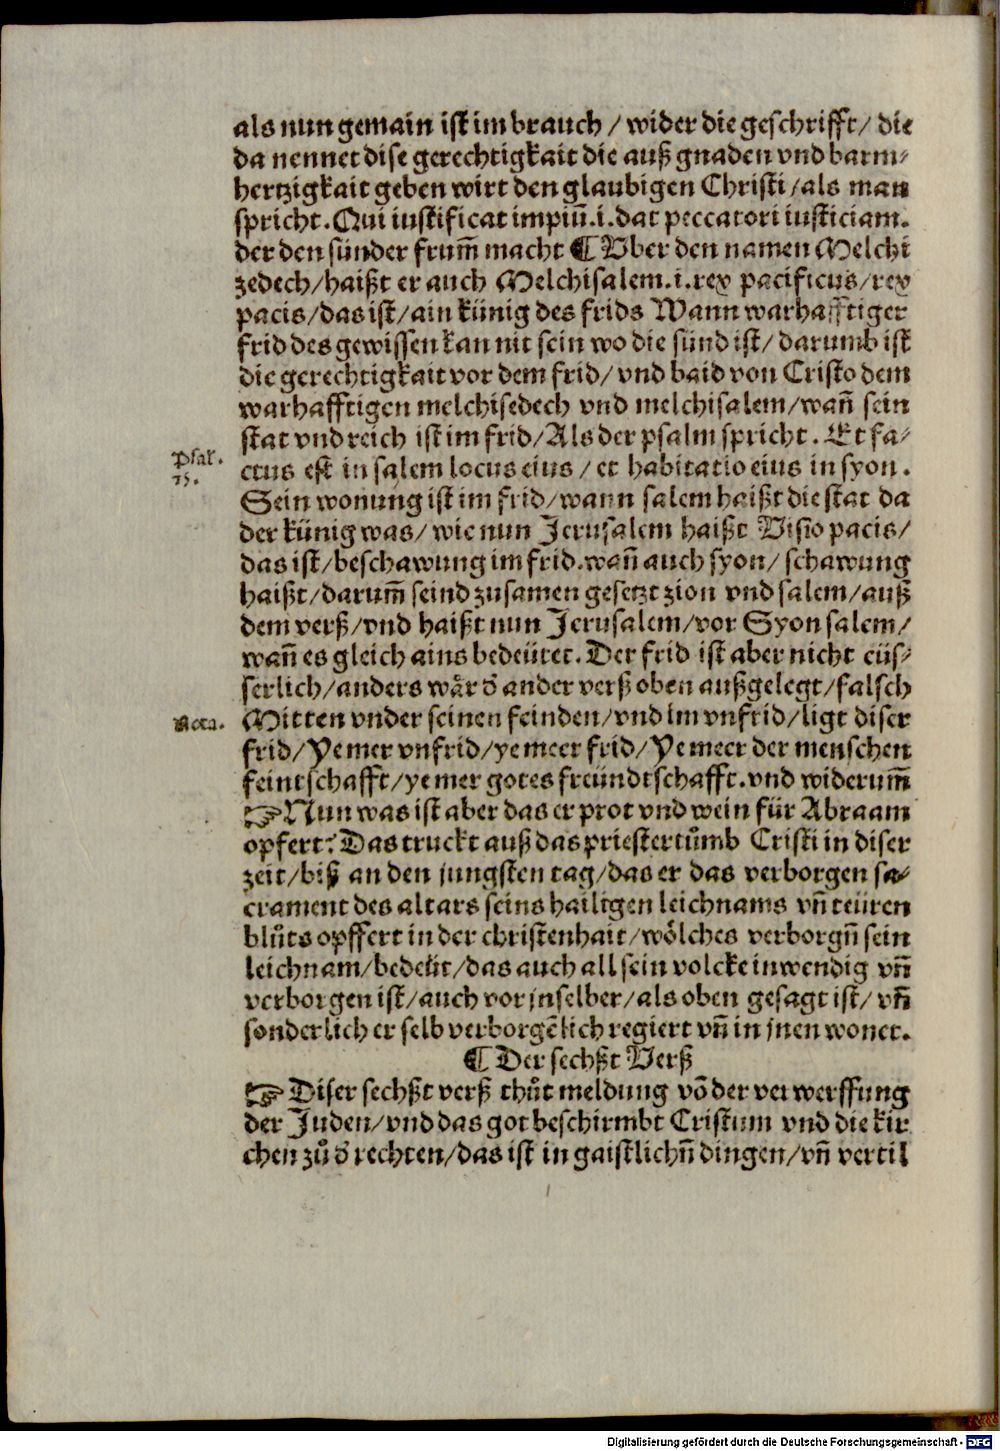 als nun gemain ist im brauch / wider die geschrifft / die
da nennet dise gerechtigkait die auß gnaden vnd barm⸗
hertzigkait geben wirt den glaubigen Christi / als man
spricht. Qui iustificat impiū .i. dat peccatori iusticiam.
der den sünder frum̄ macht ¶ Vber den namen Melchi
zedech / haißt er auch Melchisalem .i. rex pacificus / rex
pacis / das ist / ain künig des frids Wann warhafftiger
frid des gewissen kan nit sein wo die sünd ist / darumb ist
die gerechtigkait vor dem frid / vnd baid von Cristo dem
warhafftigen melchisedech vnd melchisalem / wañ sein
stat vnd reich ist im frid / Als der psalm spricht. Et fa⸗
Psal.
75.
ctus est in salem locus eius / et habitatio eius in syon.
Sein wonung ist im frid / wann salem haißt die stat da
der künig was / wie nun Jerusalem haißt Visio pacis /
das ist / beschawung im frid. wañ auch syon / schawung
haißt / darum̄ seind zusamen gesetzt zion vnd salem / auß
dem verß / vnd haißt nun Jerusalem / vor Syon salem /
wañ es gleich ains bedeütet. Der frid ist aber nicht eüs⸗
serlich / anders wår d̄ ander verß oben außgelegt / falsch
Nota.
Mitten vnder seinen feinden / vnd im vnfrid / ligt diser
frid / Ye mer vnfrid / ye meer frid / Ye meer der menschen
feintschafft / ye mer gotes freündtschafft. vnd widerum̄
☞ Nun was ist aber das er prot vnd wein für Abraam
opfert? Das truckt auß das priestertůmb Cristi in diser
zeit / biß an den jungsten tag / das er das verborgen sa⸗
crament des altars seins hailigen leichnams vñ teüren
blůts opffert in der christenhait / wölches verborgñ sein
leichnam / bedeüt / das auch all sein volck einwendig vñ
verborgen ist / auch vor jnselber / als oben gesagt ist / vñ
sonderlich er selb verborgēlich regiert vñ in jnen wonet.
¶ Der sechßt Verß
☞ Diser sechßt verß thůt meldung vō der verwerffung
der Juden / vnd das got beschirmbt Cristum vnd die kir
chen zů d̄ rechten / das ist in gaistlichñ dingen / vñ vertil
Digitalisierung gefördert durch die Deutsche Forschungsgemeinschaft - DFG